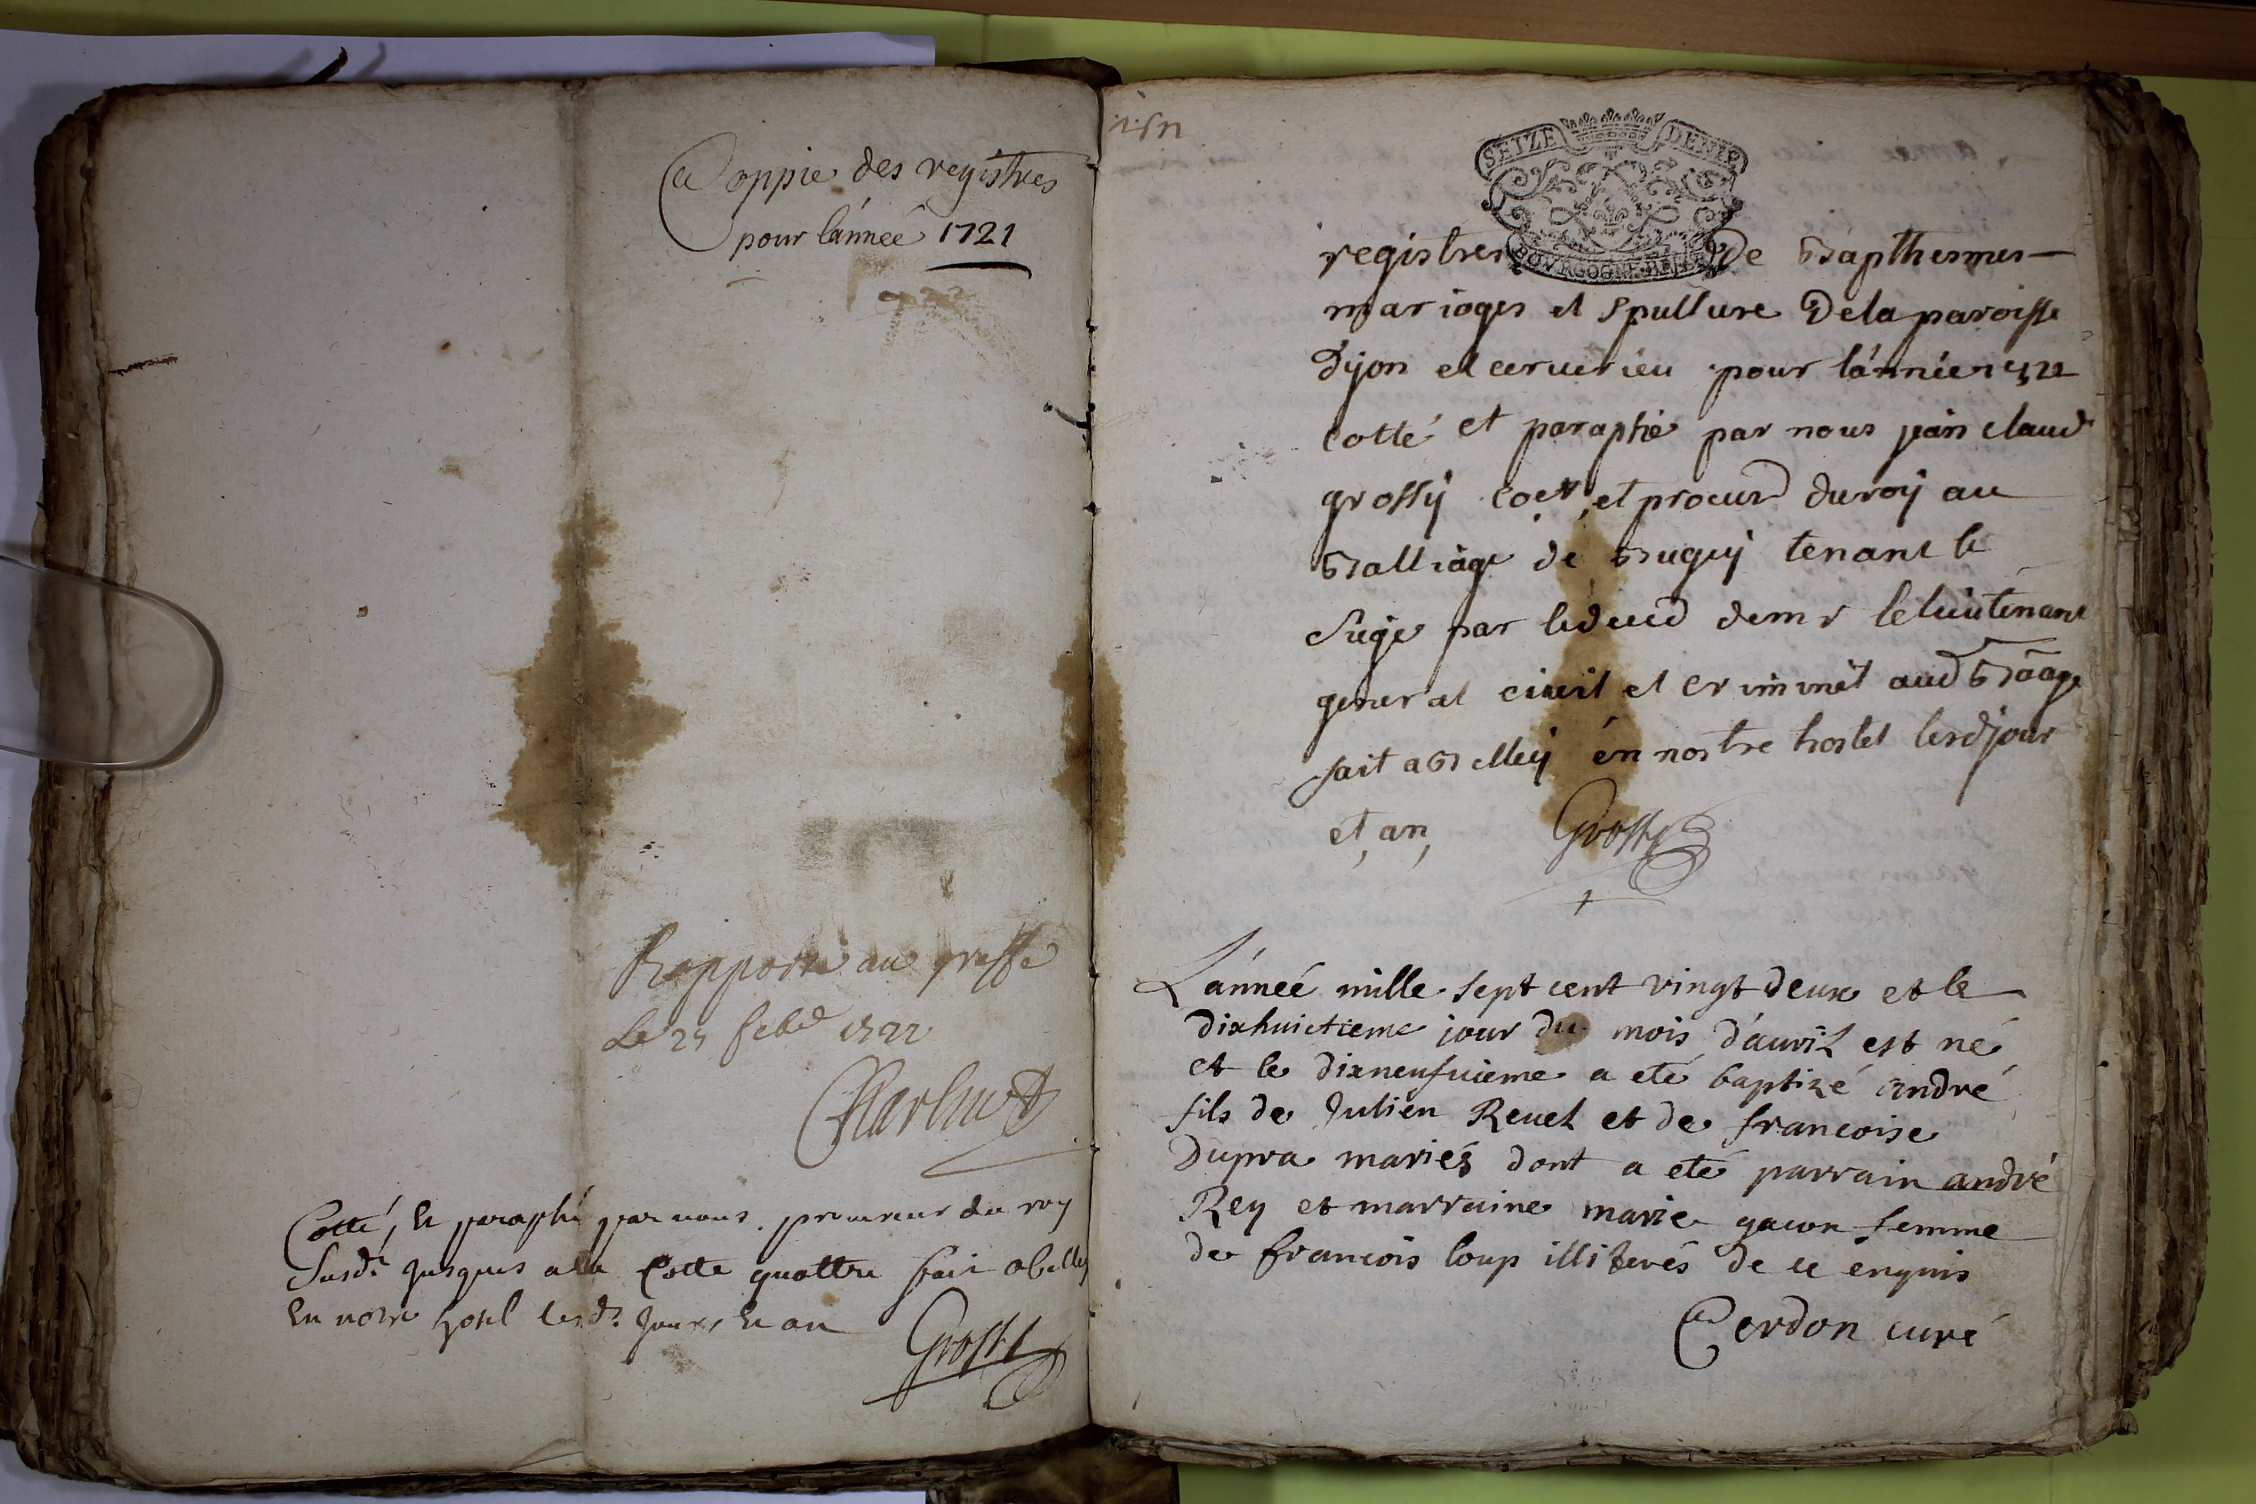 Coppie des registres
pour l'année 1721
Rapporté au greffe
Le 25 febd 1722
Cotté, et paraphé par nous procureur du roy
susd. jusques a la Cotte quattre fait a belley
En notre hotel lesd. Jour, et an
Grossy
SEIZE DENIE
BOURGOGNE
registres de Bapthesmes
mariages et spulture de la paroisse
Dijon et cerverieu pour l'année 1722
cotté et paraphé par nous jean claud
grossy coer et procurd du roy au
Balliage de Bugey tenant le
siege par le deced de mr le lieutenant
general civil et criminel aud Baage
fait a Belley en nostre hostel lesd jour
et an,
Grossy
L'année mille sept cent vingt deux et le
dixhuictieme jour du mois d'avril est né
et le dixneufuieme a eté baptizé andré
fils de Julien Revel et de francoise
Dupra mariés dont a eté parrain andré
Rey et marraine marie gacon femme
de francois loup illiterés de ce enquis
Cerdon curé